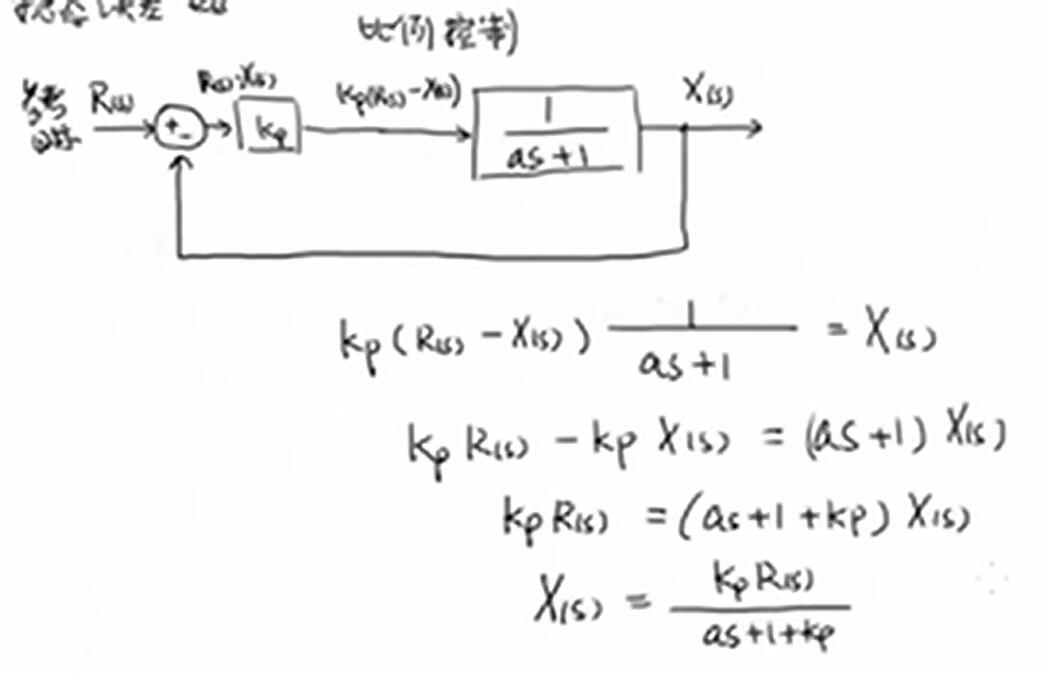 稳态误差
比例控制
参考
目标
R(s)
+ -
R(s)-X(s)
kp
kp(R(s)-X(s))
1
as+1
X(s)
kp(R(s) - X(s)) 1/(as+1) = X(s)
kp R(s) - kp X(s) = (as+1) X(s)
kp R(s) = (as+1+kp) X(s)
X(s) = kp R(s)/(as+1+kp)